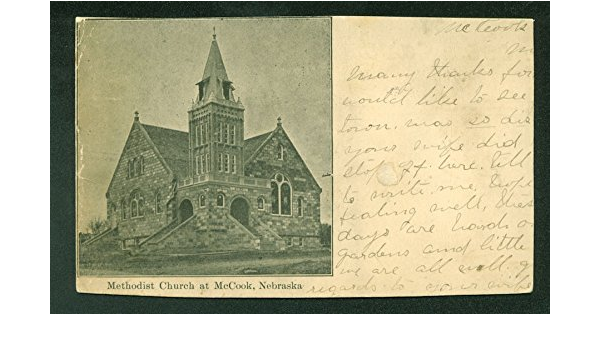 McCook
Many thanks for
would like to see
town. was so dis
your wife did
stop off here. Tell
to write me, hope
feeling well, these
days are hard o
gardens and little
we are all well. g
regards to your wife
Methodist Church at McCook, Nebraska